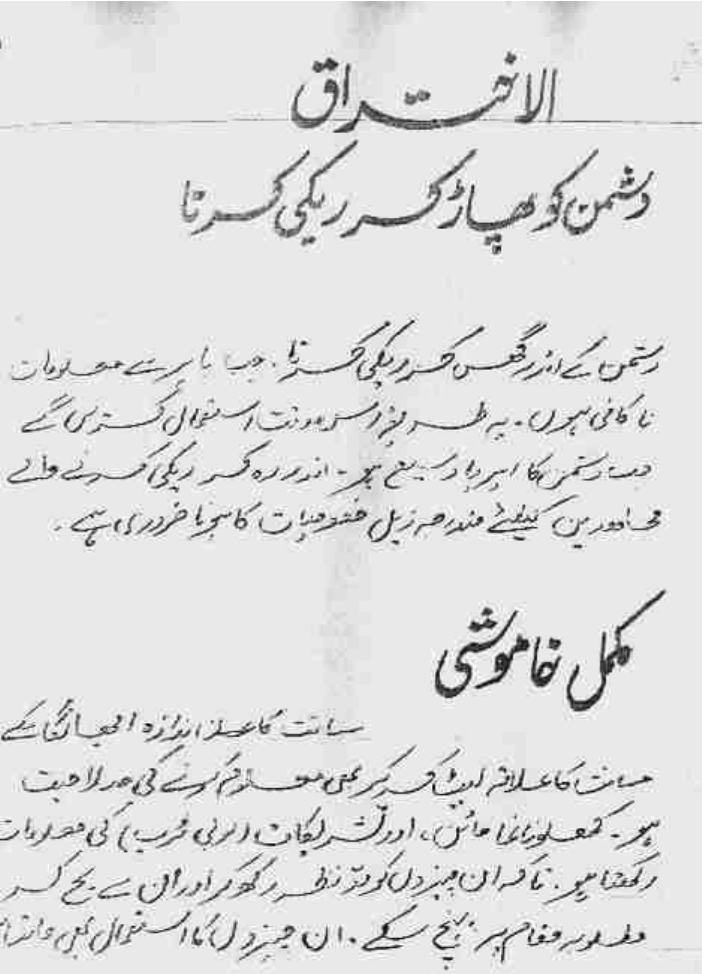 الاختراق
دشمن کو پھاڑ کر ریکی کرنا
دشمن کے اندر گھس کر ریکی کرنا۔ جب باہر سے معلومات
ناکافی ہوں۔ یہ طریقہ اس وقت استعمال کریں گے
جب دشمن کا ایریا وسیع ہو۔ اندر رہ کر ریکی کرنے والے
کیلئے مندرجہ ذیل خصوصیات کا ہونا ضروری ہے۔
مکمل خاموشی
مسافت کا اندازہ اچھا لگا کے
مسافت کا علاقہ لیٹ کر بھی معلوم کرنے کی صلاحیت
ہو۔ مائن، اور کی معلومات
رکھتا ہو۔ تاکہ ان چیزوں کو مدنظر رکھ کر اور ان سے بچ کر
مطلوبہ مقام پر پہنچ سکے۔ ان چیزوں کا استعمال بھی جانتا